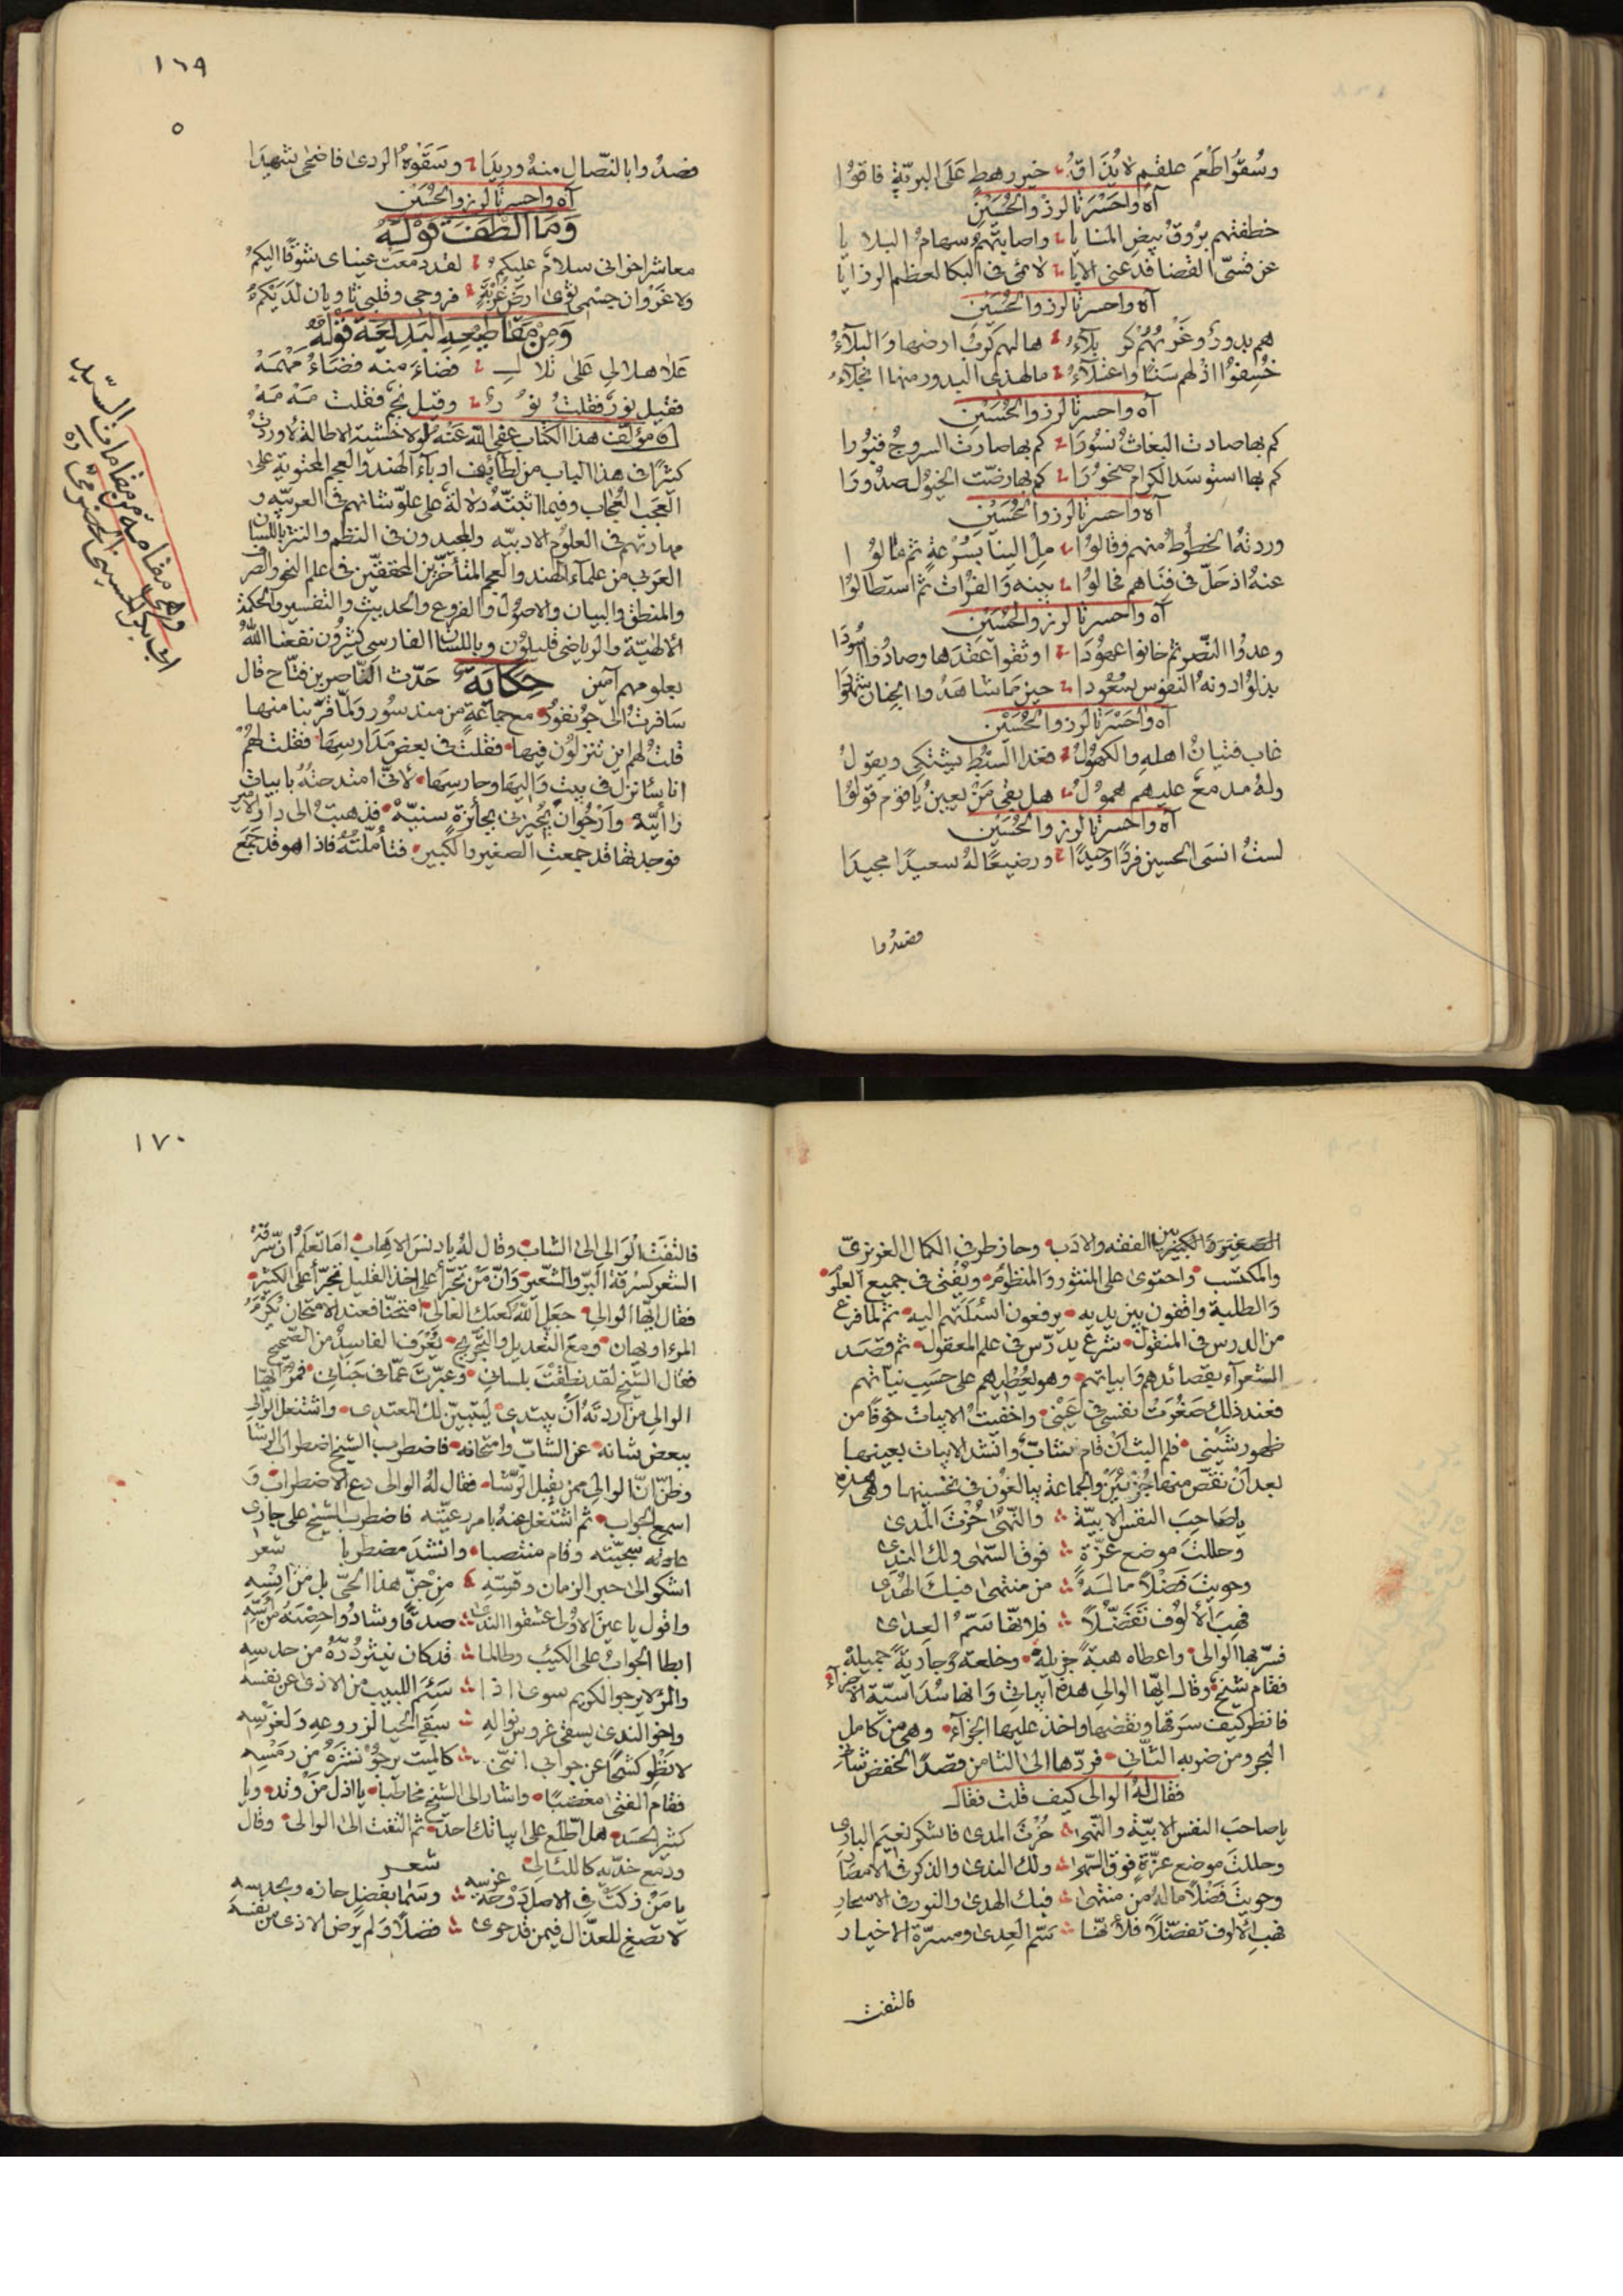 وسُقوا طعم علقم لا يُذاقُ خير رهط على البريّة فاقوا
آه واحسرتا لرزء الحُسين
خطفتهم بروقُ بيض المنايا واصابتهم سهام البلايا
عن قسيّ القضا فدعني الايا لائمي في البكا لعظم الرزايا
آه واحسرتا لرزء الحُسين
هم بدور وغربهم كربلآء ها لهم كرب ارضها والبلآء
خُسفوا اذ لهم سنًا واعتلآء ما لهذي البدور منها انجلآء
آه واحسرتا لرزء الحُسين
كم بها صادت البغاث نسورا كم بها صارت السروج قبورا
كم بها استوسد الكرام صخورا كم بها رضّت الخيول صدورا
آه واحسرتا لرزء الحُسين
وردتهُ الخطُوط منهم وقالوا مِل الينا بسُرعةٍ ثم مالوا
عنهُ اذ حلّ في فناهم فحالوا بينه والفرات ثم استطالوا
آه واحسرتا لرزء الحُسين
وعدوا النّصر ثم خانوا عهُودا اوثقوا عقدها وصادفوا اسُودا
بذلوا دونهُ النفوس سُعودا حين ما شاهدوا الجنان شهودا
آه واحسرتا لرزء الحُسين
غاب فتيانُ اهله والكهولُ فغدا السّبط يشتكي ويقولُ
ولهُ مدمع عليهم همولُ هل بقي مَنْ يعينُ يا قوم قولوا
آه واحسرتا لرزء الحُسين
لستُ انسى الحسين فردًا وحيدًا ورضيعًا لهُ سعيدًا مجيدًا
فصدوا
١٦٩
٥
فصدُوا بالنّصال منهُ وريدًا وسقوهُ الردى فاضحى شهيدًا
آه واحسرتا لرزء الحُسين
وَمَا الطَفَ قَوْلَهُ
معاشر اخواني سلام عليكمُ لقد دمعت عيناي شوقًا اليكمُ
ولا غرو ان جسمي ثوى ارض غربةٍ فروحي وقلبي ثاويان لديكمُ
وَمِنْ مقاطيعه البديعة قولهُ
علا هلالي على تلالٍ فضاء منه فضاءُ مَهْمَهْ
فقيل نورٌ فقلتُ نورٌ وقيل نجم فقلت مَهْ مَهْ
قال مؤلف هذا الكتاب عفى الله عنه لولا خشية الاطالة لاوردتُ
كثيرًا في هذا الباب من لطائف ادبآء الهند والعجم المحتوية على
العجب العُجاب وفيما اثبتّهُ دلالة على علوّ شانهم في العربيّه و
مهارتهم في العلوم الادبيّه والمجيدون في النظم والنثر باللسان
العربي من علمآء الهند والعجم المتأخرين المحققين في علم النحو والصرف
والمنطق والبيان والاصول والفروع والحديث والتفسير والحكمة
الالهيّة والرياضى قليلون وباللسان الفارسي كثيرون نفعنا اللهُ
بعلومهم آمين حِكاية حدّث الناصر بن فتّاح قال
سافرتُ الى جُونفورَ مع جماعةٍ من مندسُور ولمّا قربنا منها
قلتُ لهم اين تنزلون فيها فقلت في بعض مدارسها فقلت لهمْ
انا سأنزل في بيت واليها وحارسها لأنّي امتدحتهُ بابيات
رأئيّة وارجُو ان يُجيزني بجائزة سنيّة فذهبتُ الى دار الامير
فوجدتها قد جمعتِ الصغير والكبير فتأمّلتُه فاذا هو قد جمع
وهي مقامة من مقامات السّيد
ابي بكر الحضرمي
الصغير والكبير بين الفقه والادب وحاز طرفي الكمال الغريزيّ
والمكتسب واحتوى على المنثور والمنظوم ويُفتي في جميع العلو
والطلبة واقفون بين يديه يرفعون اسئلتهم اليه ثم لما فرغ
من الدرس في المنقول شرع يدرّس في علم المعقول ثم قصد
الشعرآء بقصائدهم وابياتهم وهو يُعطيهم على حسب نيّاتهم
فعند ذلك صَغُرَت نفسي في عيني واخفيتُ الابيات خوفًا من
ظهور شيني فلم البث ان قام شابٌّ وانشد الابيات بعينها
بعد ان نقص منها جُزئين والجماعة يبالغون في تحسينها وهي هذه
يا صَاحب النفس الابيّة والنّهى حُزْتَ المدى
وحللتَ موضع عزّةٍ فوق السّهى ولك الندى
وحويتَ فضلًا ما لهُ من منتهى فيك الهُدى
فهب الألوف تفضّلًا فلأنها سَمّ العدى
فسّر بها الوالي واعطاه هبة جزيلة وخلعة وجارية جميلة
فقام شيخ وقال ايّها الوالي هذه ابياتي وانها سُداسيّة الاجزآء
فانظر كيف سرقها ونقصها واخذ عليها الجزآء وهي من كامل
البحر ومن ضربه الثاني فردّها الى الثامن قصدًا لخفض شاني
فقال لهُ الوالي كيف قلت فقال
يا صاحب النفس الابيّة والنّهى حُزْتَ المدى فاشكر نعيم الباري
وحللتَ موضع عزّةٍ فوق السّهى ولك الندى والذكر في الامصار
وحويتَ فضلًا ما لهُ من منتهى فيك الهدى والنور في الاسحار
فهب الألوف تفضّلًا فلأنها سَمّ العدى ومسرّة الاخيار
فالتفت
١٧٠
فالتفتَ الوالي الى الشاب وقال لهُ يا دنس الاهاب اما تعلم ان سرقة
الشعر كسرقة البرّ والشعير وانّ مَنْ تجرّأ على اخذ القليل تجرّأ على الكثير
فقال ايّها الوالي جعل الله كعبك العالي امتحنّا فعند الامتحان يُكرَمُ
المرء او يهان ومع التعديل والتجريح يُعرف الفاسد من الصحيح
فقال الشيخ لقد نطقت بلساني وعبّرتَ عمّا في جناني فمر ايّها
الوالي من اردتَهُ ان يبتدي ليتبيّن لك المعتدي واشتغل الوالي
ببعض شانه عن الشابّ وامتحانه فاضطرب الشيخ اضطراب الرشا
وظنّ انّ الوالي ممن يقبل الرّشا فقال لهُ الوالي دع الاضطراب و
اسمع الجواب ثم اشتغل عنهُ بامر رعيّته فاضطرب الشيخ على جاري
عادته سجيّته وقام منتصبا وانشد مضطربا شعر
اشكو الى حبر الزمان وقسّهِ مِنْ جنّ هذا الحيّ بل من انسِهِ
واقول يا عين الاولى عشقوا الندى صدقًا وشادُوا حِصْنَهُ من اُسّهِ
ابطا الجوابُ على الكئيب وطالما قد كان ينثر دُرّهُ من حدسِهِ
والمرْ لا يرجو الكريم سوى اذا سَئِمَ اللبيب من الاذى عن نفسه
واخو الندى يسقي غروس نواله سقي الحيا لزروعه ولغرسه
لا تطوِ كشحًا عن جوابي انني كالميت يرجُو نشرَهُ من رمْسِهِ
فقام الفتى مغضبًا واشار الى الشيخ مخاطبا يا اذل مَنْ وتد ويا
كثير الحسد هل اطّلع على ابياتك احد ثم التفت الى الوالي وقال
ودمع خدّيه كاللئالي شعر
يا مَنْ زكت في الاصل دَوْحة غرسه وسَما بفضلٍ حازه وبحدسه
لا تصغِ للعذّال فيمن قد حوى فضلًا ولم يرض الاذى من نفسه